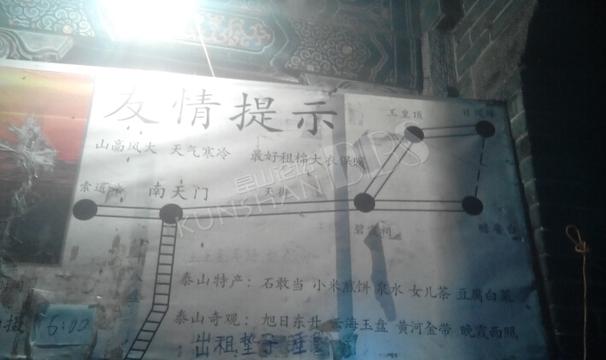 友情提示
山高风大 天气寒冷 最好租棉大衣保暖
玉皇顶 日观峰
索道 南天门 天街
碧霞祠
泰山特产： 石敢当 小米煎饼 泉水 女儿茶 豆腐白菜
泰山奇观： 旭日东升 云海玉盘 黄河金带 晚霞夕照
报 6:00
出租垫子
KUNSHAN DDS